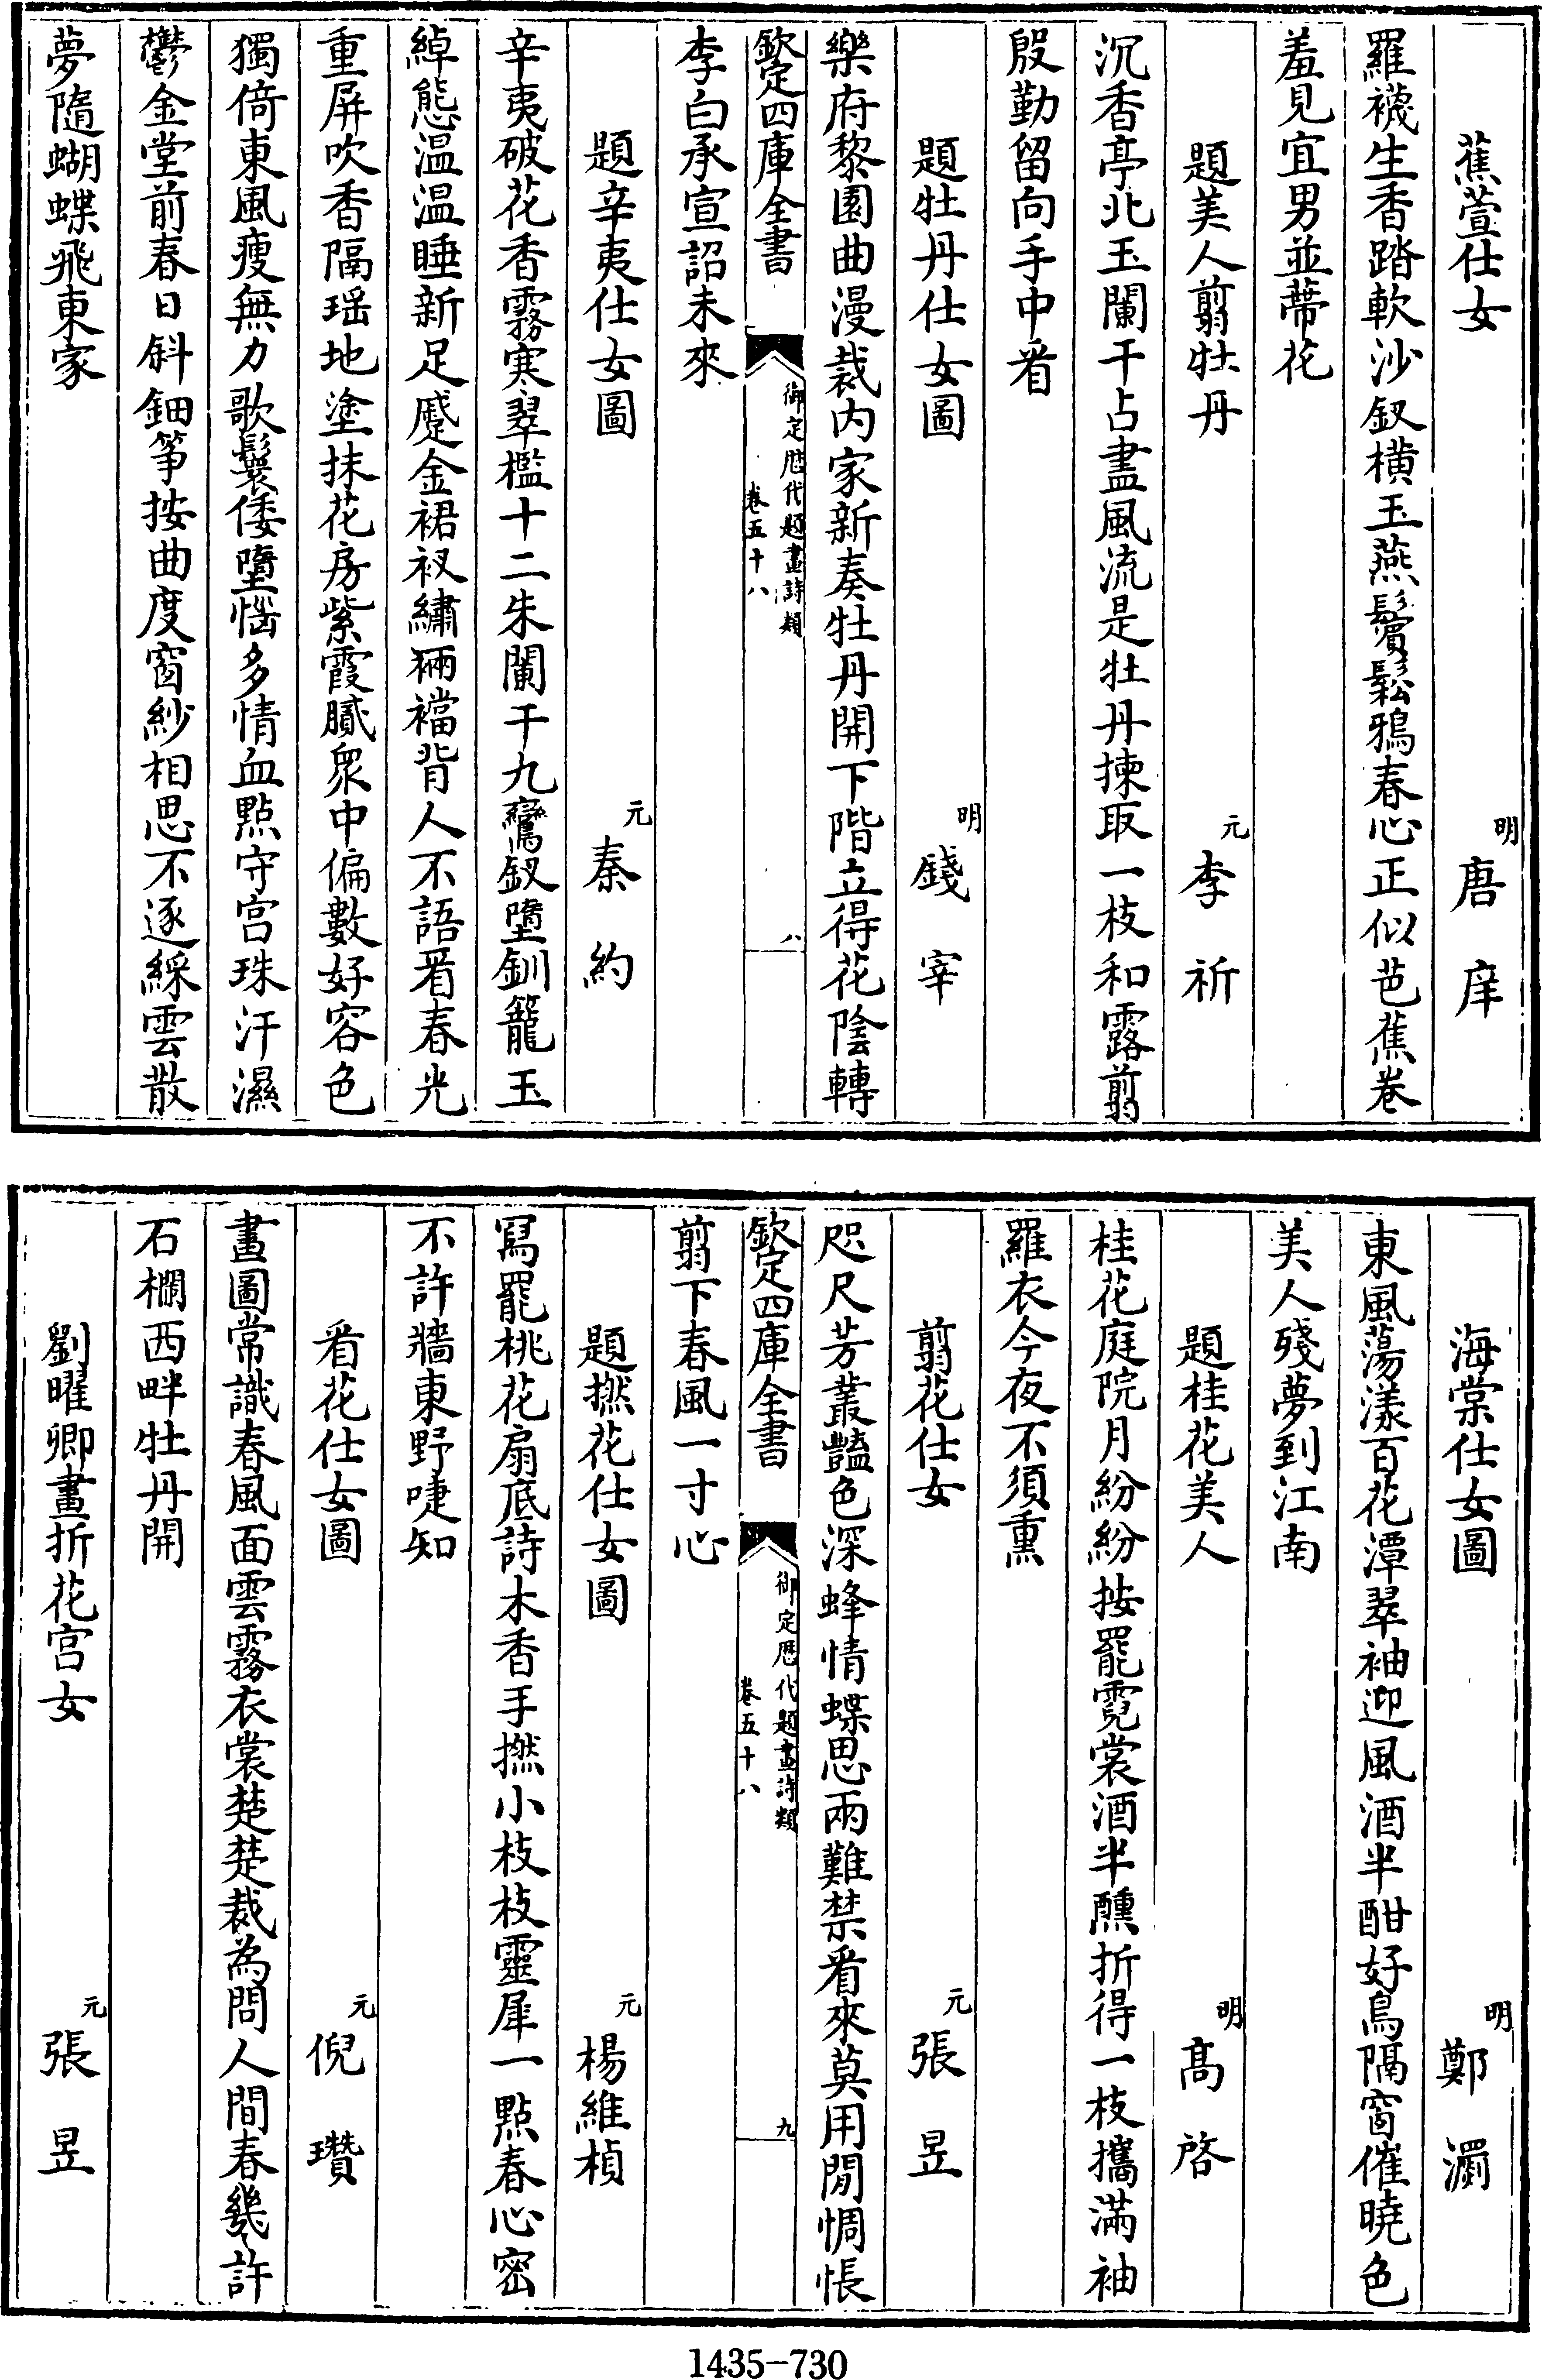 蕉萱仕女 明 唐庠
羅襪生香踏軟沙釵橫玉燕鬢鬆鴉春心正似芭蕉卷
羞見宜男並蔕花
題美人翦牡丹 元 李祈
沉香亭北玉闌干占盡風流是牡丹揀取一枝和露翦
殷勤留向手中看
題牡丹仕女圖 明 錢宰
樂府黎園曲漫裁内家新奏牡丹開下階立得花陰轉
欽定四庫全書 御定厯代題畫詩類 卷五十八 八
李白承宣詔未來
題辛夷仕女圖 元 秦約
辛夷破花香霧寒翠檻十二朱闌干九鸞釵墮釧籠玉
綽態温温睡新足蹙金裙衩繡裲襠背人不語看春光
重屏吹香隔瑶地塗抹花房紫霞膩衆中偏數好容色
獨倚東風瘦無力歌鬟倭墮惱多情血點守宫珠汗濕
鬱金堂前春日斜鈿筝按曲度窗紗相思不逐綵雲散
夢隨蝴蝶飛東家
海棠仕女圖 明 鄭灝
東風蕩漾百花潭翠袖迎風酒半酣好鳥隔窗催曉色
美人殘夢到江南
題桂花美人 明 高啓
桂花庭院月紛紛按罷霓裳酒半醺折得一枝攜滿袖
羅衣今夜不須熏
翦花仕女 元 張昱
咫尺芳叢豔色深蜂情蝶思兩難禁看來莫用閒惆悵
欽定四庫全書 御定厯代題畫詩類 卷五十八 九
翦下春風一寸心
題撚花仕女圖 元 楊維楨
寫罷桃花扇底詩木香手撚小枝枝靈犀一點春心密
不許牆東野啑知
看花仕女圖 元 倪瓚
畫圖常識春風面雲霧衣裳楚楚裁為問人間春幾許
石欄西畔牡丹開
劉曜卿畫折花宫女 元 張昱
1435-730